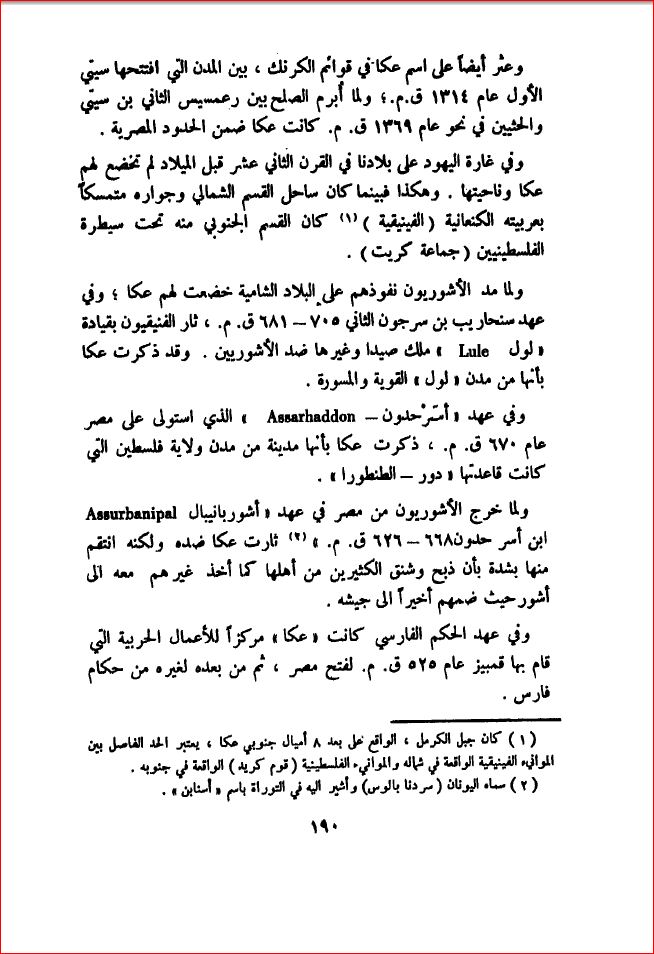 وعثر أيضاً على اسم عكا في قوائم الكرنك ، بين المدن التي افتتحها سيتي
الأول عام ١٣١٤ ق.م.؛ ولما أُبرم الصلح بين رعمسيس الثاني بن سيتي
والحثيين في نحو عام ١٣٦٩ ق. م. كانت عكا ضمن الحدود المصرية .
وفي غارة اليهود على بلادنا في القرن الثاني عشر قبل الميلاد لم تخضع لهم
عكا وناحيتها . وهكذا فبينما كان ساحل القسم الشمالي وجواره متمسكاً
بعربيته الكنعانية (الفينيقية )(١) كان القسم الجنوبي منه تحت سيطرة
الفلسطينيين (جماعة كريت) .
ولما مد الأشوريون نفوذهم على البلاد الشامية خضعت لهم عكا ؛ وفي
عهد سنحاريب بن سرجون الثاني ٧٠٥ – ٦٨١ ق. م. ، ثار الفنيقيون بقيادة
« لول Lule » ملك صيدا وغيرها ضد الأشوريين . وقد ذكرت عكا
بأنها من مدن « لول » القوية والمسورة .
وفي عهد « أسّرْحدون – Assarhaddon » الذي استولى على مصر
عام ٦٧٠ ق. م. ، ذكرت عكا بأنها مدينة من مدن ولاية فلسطين التي
كانت قاعدتها « دور – الطنطورا » .
ولما خرج الأشوريون من مصر في عهد « أشوربانيبال Assurbanipal
ابن أسر حدون ٦٦٨ – ٦٢٦ ق. م. » (٢) ثارت عكا ضده ولكنه انتقم
منها بشدة بأن ذبح وشنق الكثيرين من أهلها كما أخذ غيرهم معه الى
أشور حيث ضمهم أخيراً الى جيشه .
وفي عهد الحكم الفارسي كانت « عكا » مركزاً للأعمال الحربية التي
قام بها قمبيز عام ٥٢٥ ق. م. لفتح مصر ، ثم من بعده لغيره من حكام
فارس .
(١) كان جبل الكرمل ، الواقع على بعد ٨ أميال جنوبي عكا ، يعتبر الحد الفاصل بين
الموانىء الفينيقية الواقعة في شماله والموانىء الفلسطينية (قوم كريد) الواقعة في جنوبه .
(٢) سماه اليونان (سردنا بالوس) وأشير اليه في التوراة باسم « أسنابن » .
١٩٠